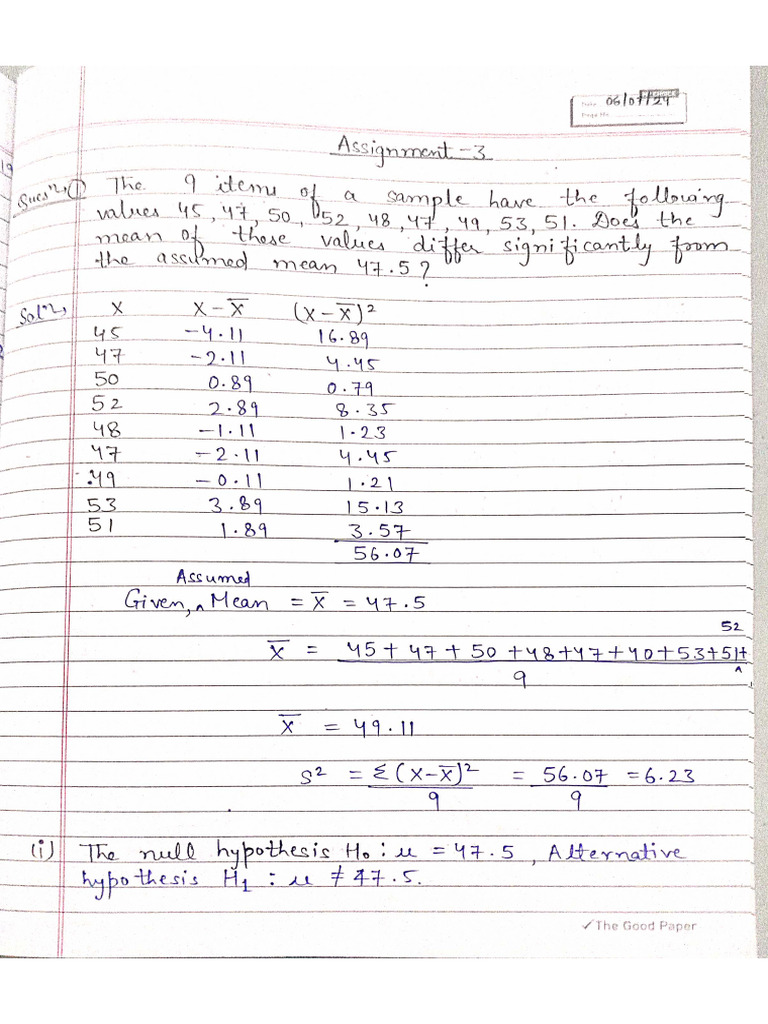 Date 06/07/24
Page No.
Assignment-3
Quesⁿ, ① The 9 items of a sample have the following
values 45, 47, 50, 52, 48, 47, 49, 53, 51. Does the
mean of these values differ significantly from
the assumed mean 47.5?
Solⁿ, X X-X̅ (X-X̅)²
45 -4.11 16.89
47 -2.11 4.45
50 0.89 0.79
52 2.89 8.35
48 -1.11 1.23
47 -2.11 4.45
49 -0.11 1.21
53 3.89 15.13
51 1.89 3.57
56.07
Assumed
Given, ^ Mean = X̅ = 47.5
52
X̅ = 45+47+50+48+47+40+53+51+
^
9
X̅ = 49.11
S² = Σ(X-X̅)² = 56.07 = 6.23
9 9
(i) The null hypothesis H₀ : u = 47.5, Alternative
hypothesis H₁ : u ≠ 47.5.
✓The Good Paper